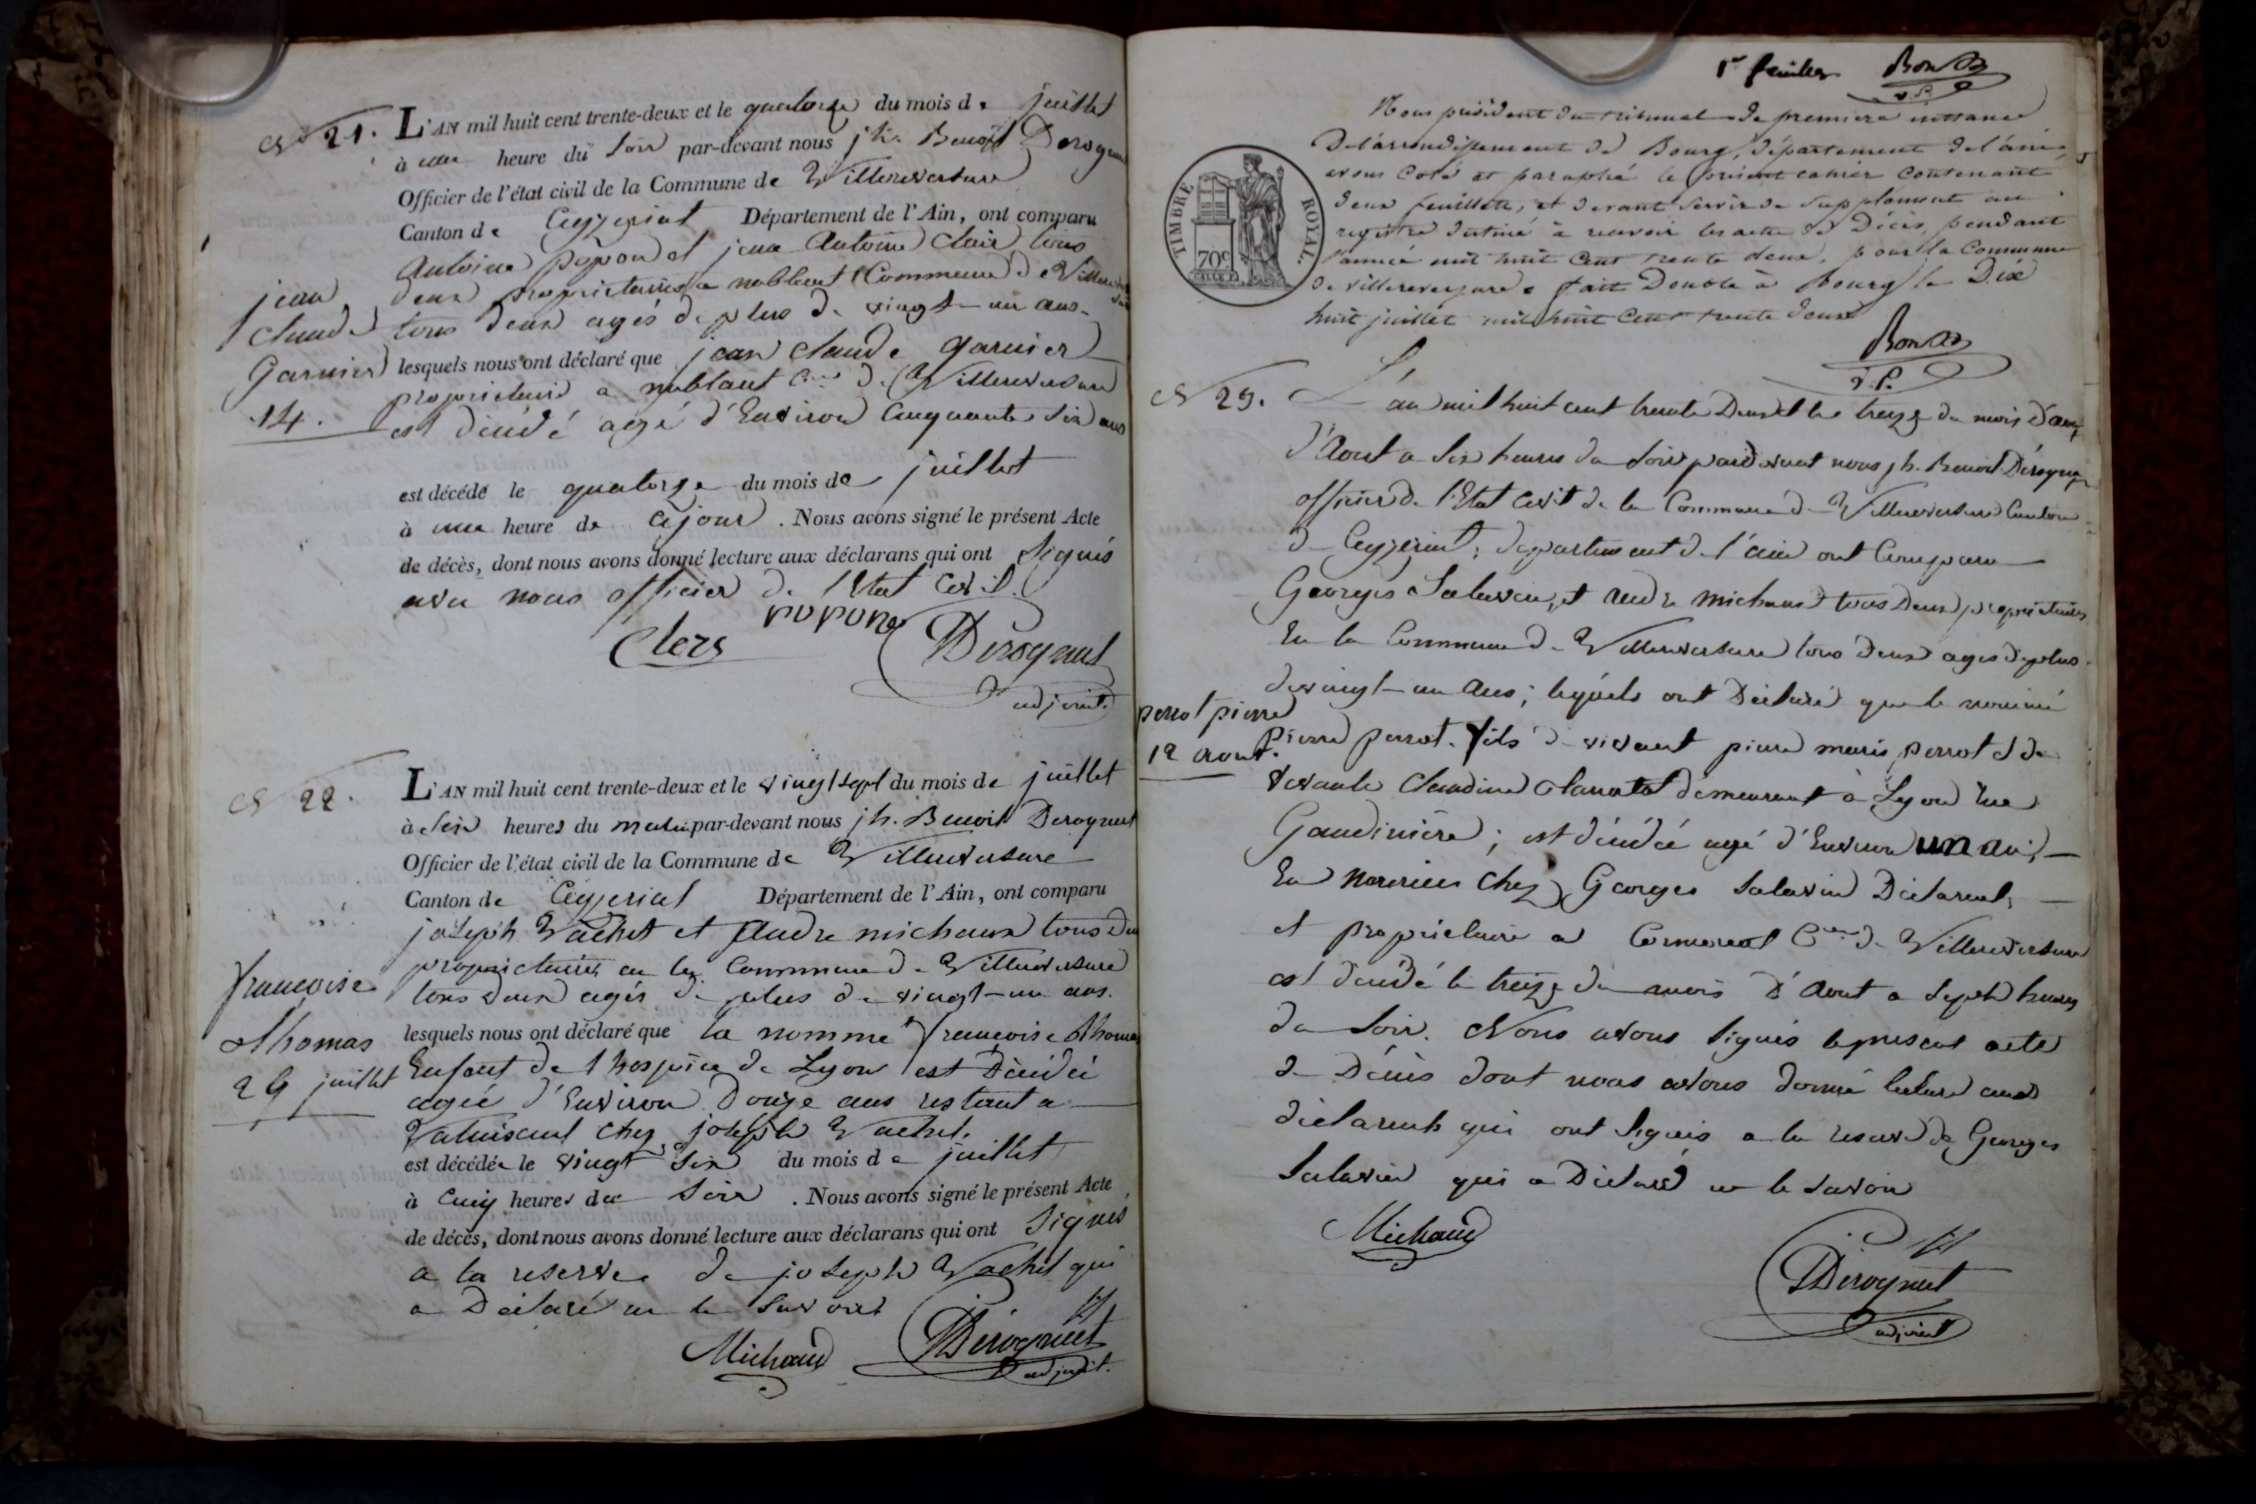 N° 21.
L'AN mil huit cent trente-deux et le quatorze du mois de juillet
à une heure du soir par-devant nous jh. Benoit Derognat
Officier de l'état civil de la Commune de Villereversure
Canton de Ceyzeriat Département de l'Ain, ont comparu
Antoine popon et jean Antoine Clair tous
deux propriétaires a noblant Commune de Villereversure
tous deux agés de plus de vingt-un ans.
jean
claude
Garnier
14.
lesquels nous ont déclaré que jean claude garnier
propriétaire a noblant Cne de Villereversure
est décédé agé d'Environ Cinquante Six ans
est décédé le quatorze du mois de juillet
à une heure de ce jour. Nous avons signé le présent Acte
de décès, dont nous avons donné lecture aux déclarans qui ont Signés
avec nous officier de l'Etat Civil.
popon
Clers
Derognat
adjoint.
N° 22.
L'AN mil huit cent trente-deux et le vingt Sept du mois de juillet
à Six heures du matin par-devant nous jh. Benoit Derognat
Officier de l'état civil de la Commune de Villereversure
Canton de Ceyzeriat Département de l'Ain, ont comparu
joseph Vachet et André michaud tous
propriétaires en la Commune de Villereversure
tous deux agés de plus de vingt-un ans.
francoise
thomas
lesquels nous ont déclaré que la nommé francoise thomas
juillet
Enfant de l'hospice de Lyon est Décédée
agée d'Environ Douze ans restant a
chez joseph Vachet.
est décédée le vingt Six du mois de juillet
à cinq heures du Soir. Nous avons signé le présent Acte
de décès, dont nous avons donné lecture aux déclarans qui ont Signés
a la reserve de joseph Vachet qui
a Déclaré ne le Savoir
Michaud
Derognat
adjoint.
1er feuillet Bon
v.P.
Nous président du tribunal de premiere instance
De l'arrondissement de Bourg, département de l'ain,
avons Coté et paraphé le présent cahier contenant
deux feuillets, et devant Servir de Supplement au
registre destiné à recevoir les actes de Décès, pendant
l'année mil huit Cent trente deux, pour la Commune
de villereversure. fait Double à Bourg le Dix
huit juillet mil huit Cent trente deux
TIMBRE ROYAL.
70c
Bon
v.P.
N° 23.
L'an mil huit cent trente Deux et le treize du mois d'aout
d'Aout a Six heures du Soir pardevant nous jh. Benoit Derognat
officier de l'Etat Civil de la Commune de Villereversure Canton
de Ceyzeriat; departement de l'ain ont Comparu
Georges Salavin, et André michaud tous Deux propriétaires
En la Commune de Villereversure tous deux agés de plus
de vingt-un ans; lequels ont Déclaré que le nommé
perrot pierre
12 aout.
Pierre perrot. fils de vivant pierre marie perrot et de
vivante Claudine demeurant à Lyon rue
Gaudinière; est décédé agé d'Environ un an,
En Nourrice chez Georges Salavin Déclarant,
et propriétaire a Cormoret Cne de Villereversure
est décédé le treize du mois d'Aout a Sept heures
du Soir. Nous avons Signés le présent acte
de Décès dont nous avons donné lecture aux
déclarants qui ont Signés a la reserve de Georges
Salavin qui a Déclaré ne le Savoir
Michaud
Derognat
adjoint